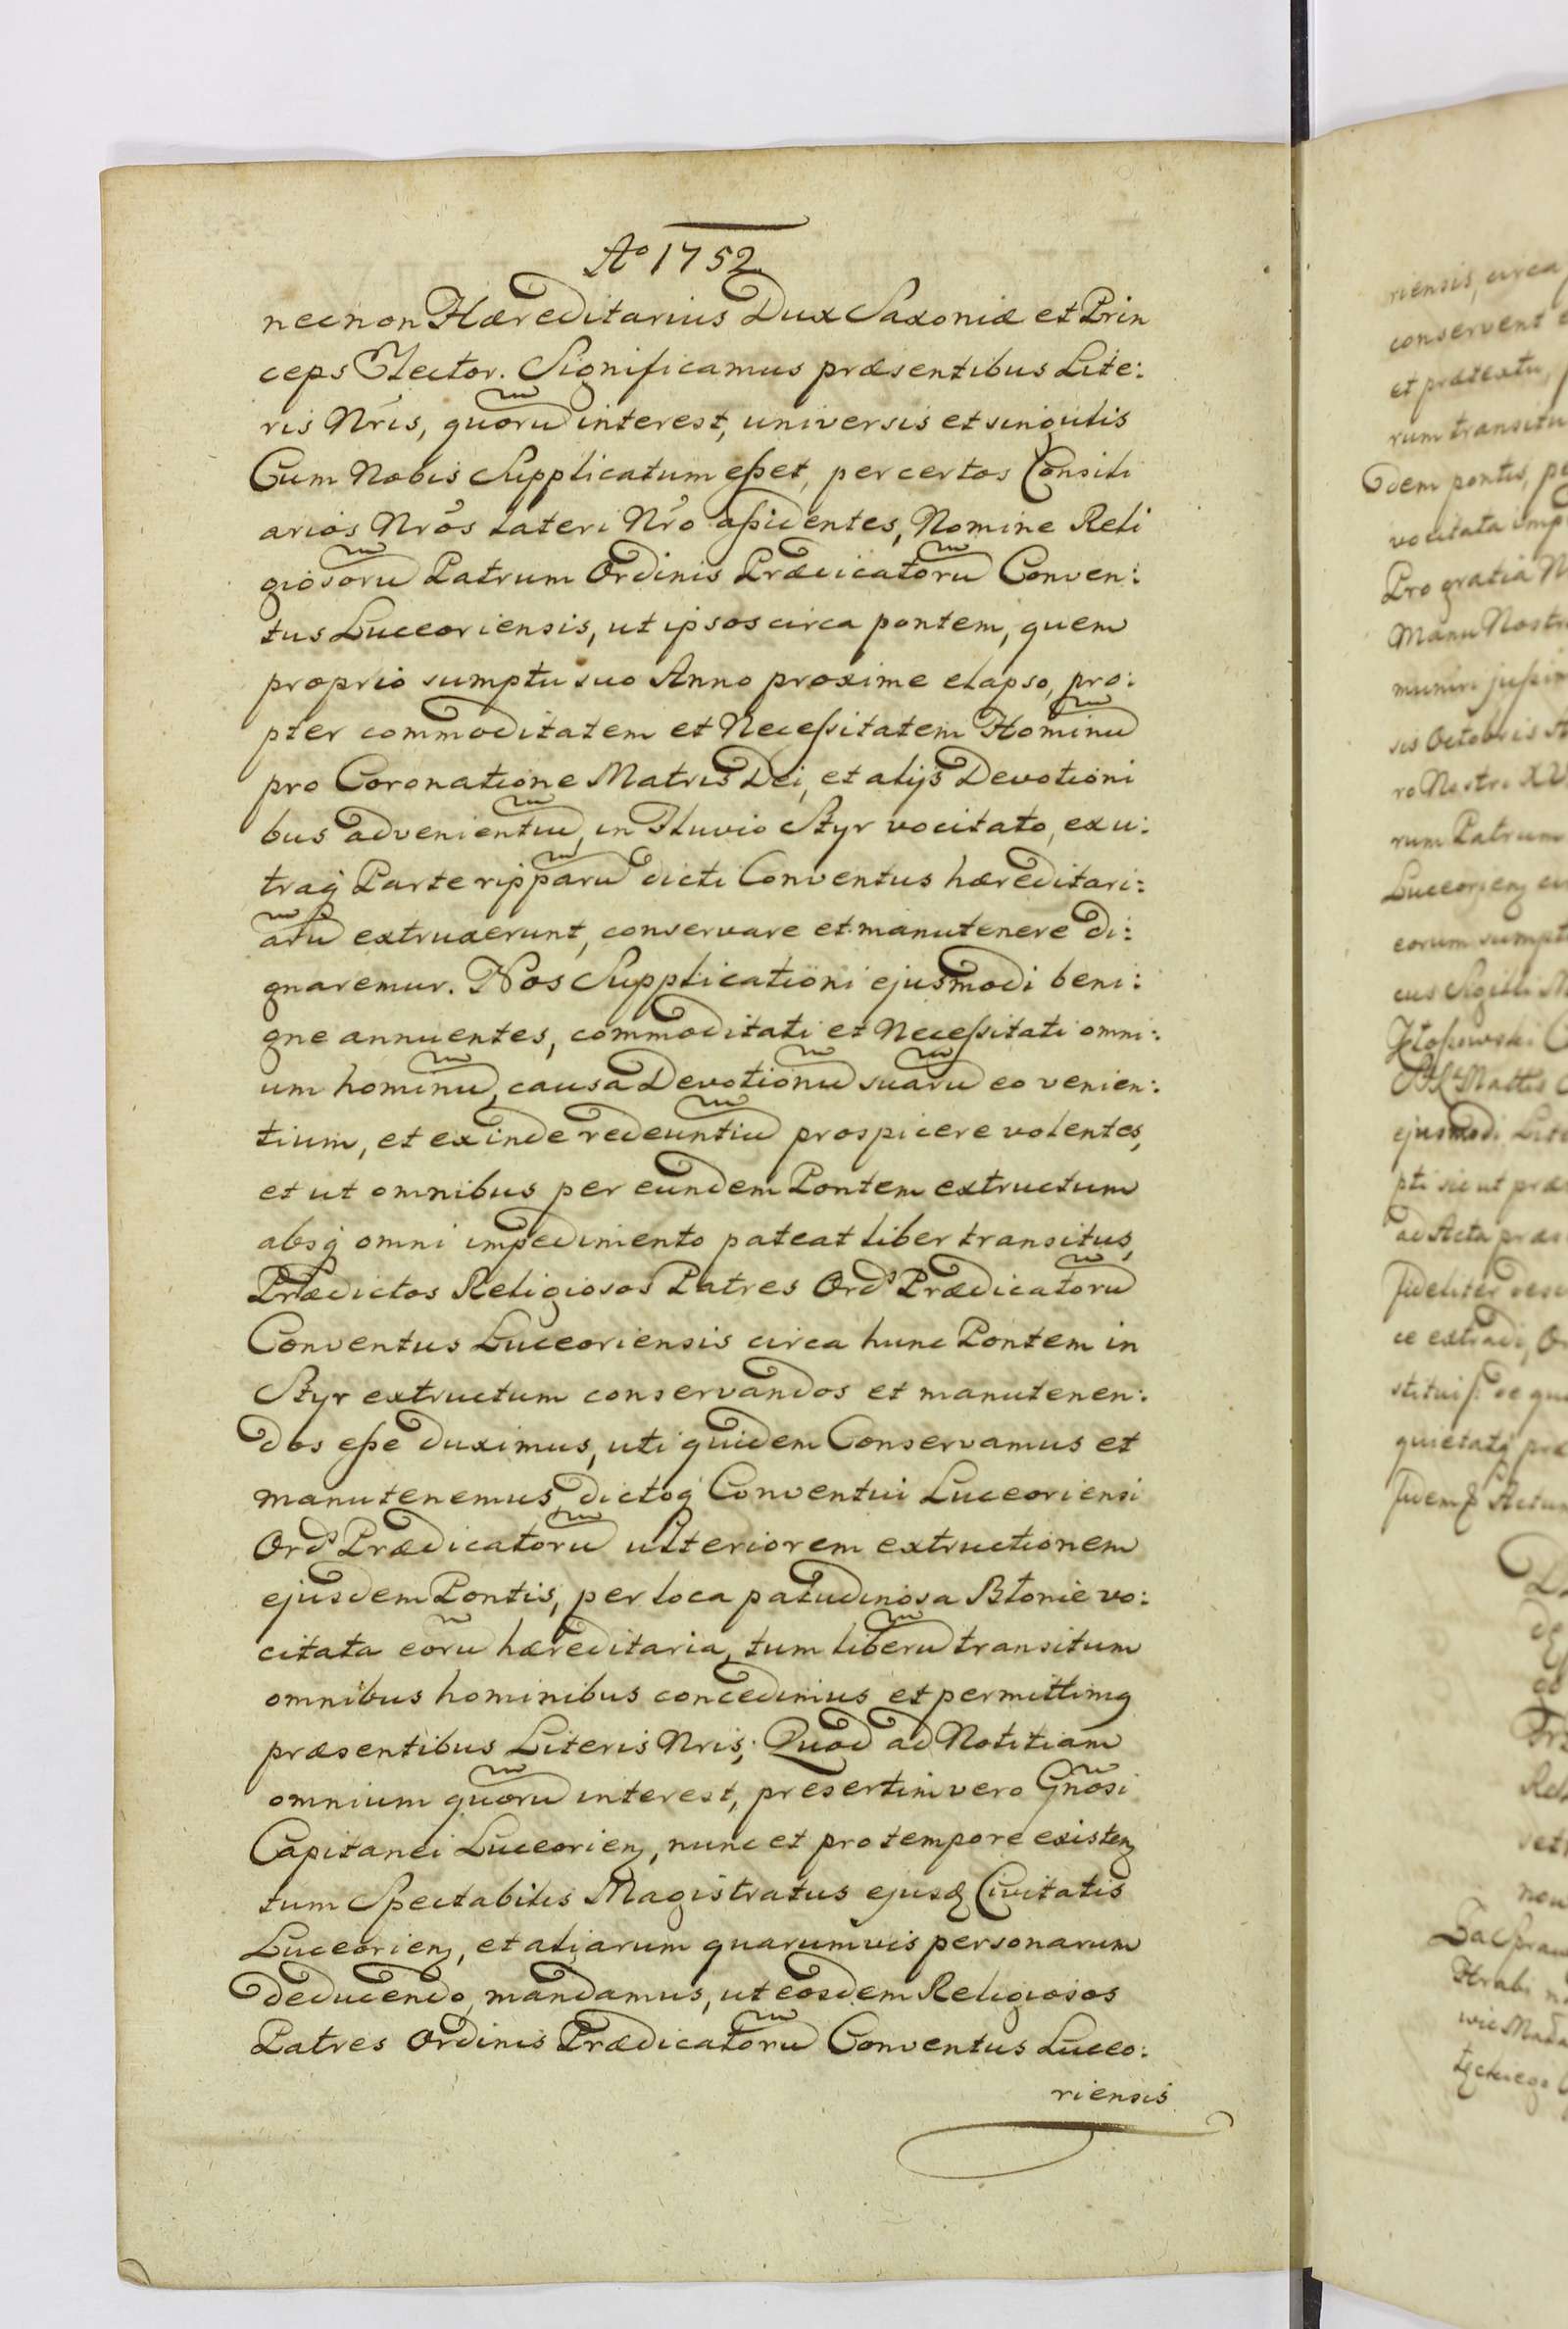 Ao 1752.
necnon Hæreditarius Dux Saxoniæ et Prin
ceps Elector. Significamus præsentibus Lite:
ris Nris, quoru interest, universis et singulis
Cum Nobis Supplicatum eßet, per certos Consili
arios Nros lateri Nro aßidentes, Nomine Reli
giosoru Patrum Ordinis Prædicatoru Conven:
tus Luceoriensis, ut ipsos circa pontem, quem
proprio sumptu suo Anno proxime elapso, pro:
pter commoditatem et Neceßitatem Hominu
pro Coronatione Matris Dei, et alijs Devotioni
bus advenientiu, in Fluvio Styr vocitato, ex u:
traq Parte ripparu dicti Conventus hæreditari:
aru extruxerunt, conservare et manutenere di:
gnaremur. Nos Supplicationi ejusmodi beni:
gne annuentes, commoditati et Neceßitati omni:
um hominu, causa Devotionu suaru eo venien:
tium, et exinde redeuntiu prospicere volentes,
et ut omnibus per eundem Pontem extructum
absq omni impedimento pateat liber transitus,
Prædictos Religiosos Patres Ords Prædicatoru
Conventus Luceoriensis circa hunc Pontem in
Styr extructum conservandos et manutenen:
dos eße duximus, uti quidem Conservamus et
manutenemus, dictoq Conventui Luceoriensi
Ords Prædicatoru ulteriorem extructionem
ejusdem Pontis, per loca paludinosa Błonie vo:
citata eoru hæreditaria, tum liberu transitum
omnibus hominibus concedimus et permittimq
præsentibus Literis Nris; Quod ad Notitiam
omnium quoru interest, presertim vero Gnosi
Capitanei Luceorien, nunc et pro tempore existen
tum Spectabilis Magistratus ejusd Civitatis
Luceorien, et aliarum quarumvis personarum
deducendo, mandamus, ut eosdem Religiosos
Patres Ordinis Prædicatoru Conventus Luceo:
riensis
riensis, circa
conservent
et prætextu,
rum transitu
dem pontis,
vocitata imp
Pro gratia
Manu Nostr
muniri jußim
sis Octobris
ro Nostri XV
rum Patrum
eorum sumpt
ejusmodi Lit
pti sic ut præ
ad Acta præ
fideliter
quietatq præ